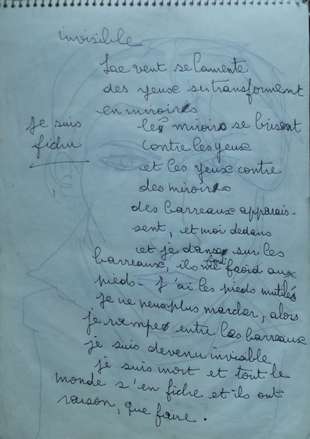 invisible
Le vent se lamente
des yeux se transforment
en miroirs
je suis
fichu
les miroirs se brisent
contre les yeux
et les yeux contre
des miroirs
des barreaux apparais-
sent, et moi dedans
et je danse sur les
barreaux, ils froid aux
pieds - j'ai les pieds mutilés
je ne peux plus marcher, alors
je rampe entre les barreaux
je suis devenu invisible
je suis mort et tout le
monde s'en fiche et ils ont
raison, que faire.